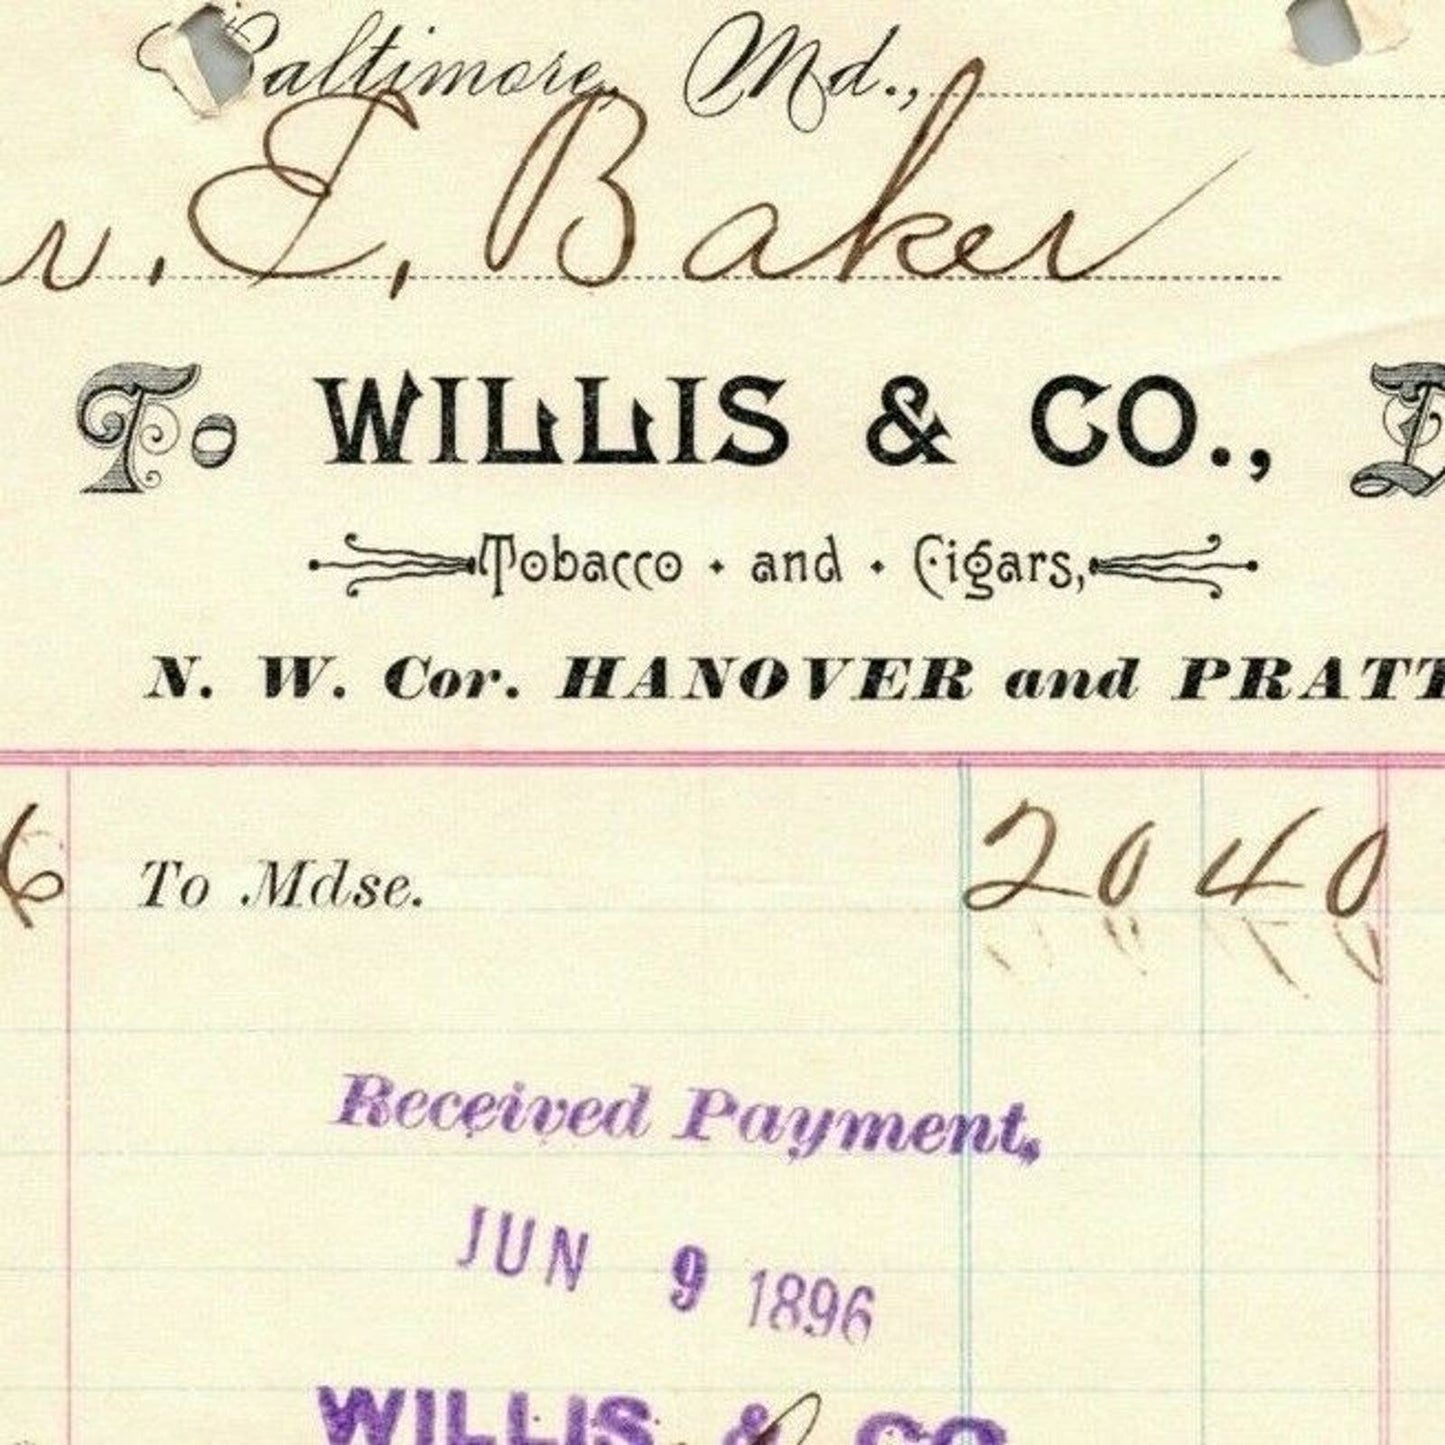 Baltimore, Md.,
E. Baker
To WILLIS & CO.,
Tobacco · and · Cigars,
N. W. Cor. HANOVER and PRATT
6 To Mdse. 20 40
Received Payment,
JUN 9 1896
WILLIS & CO